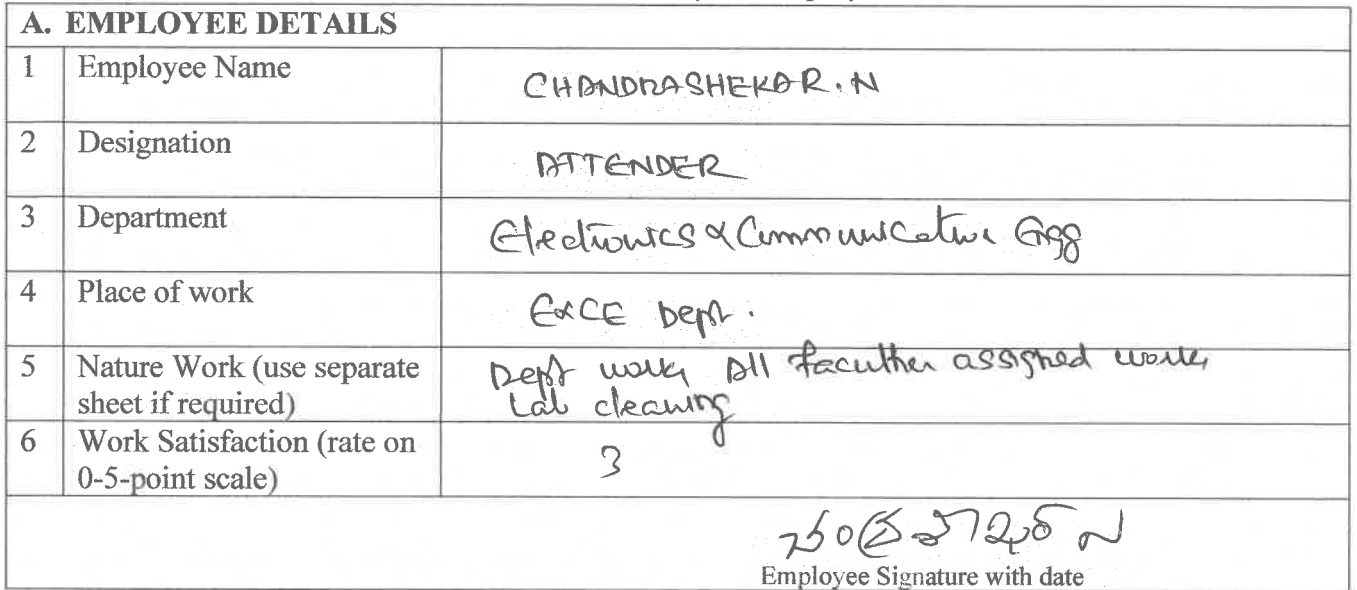 A. EMPLOYEE DETAILS
1 Employee Name CHANDRASHEKAR. N
2 Designation ATTENDER
3 Department Electronics & Communication Engg
4 Place of work E&CE Dept.
5 Nature Work (use separate sheet if required) Dept work, All assigned work,
Lab cleaning
6 Work Satisfaction (rate on 0-5-point scale) 3
ಚಂದ್ರಶೇಖರ್ ನ
Employee Signature with date